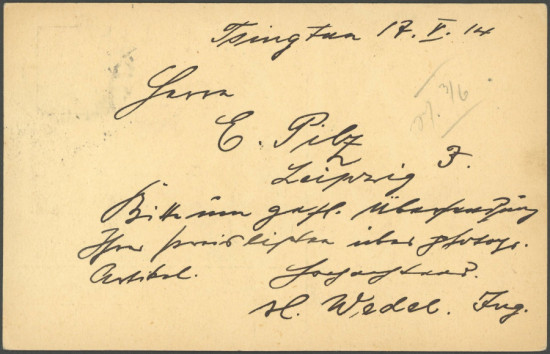 Tsingtau 17. V. 14
Herrn
E. Pilz
Leipzig 3.
Bitte um gefl. Übersendung
Ihrer Preislisten über photogr.
Artikel. Hochachtend.
H. Wedel. Ing.